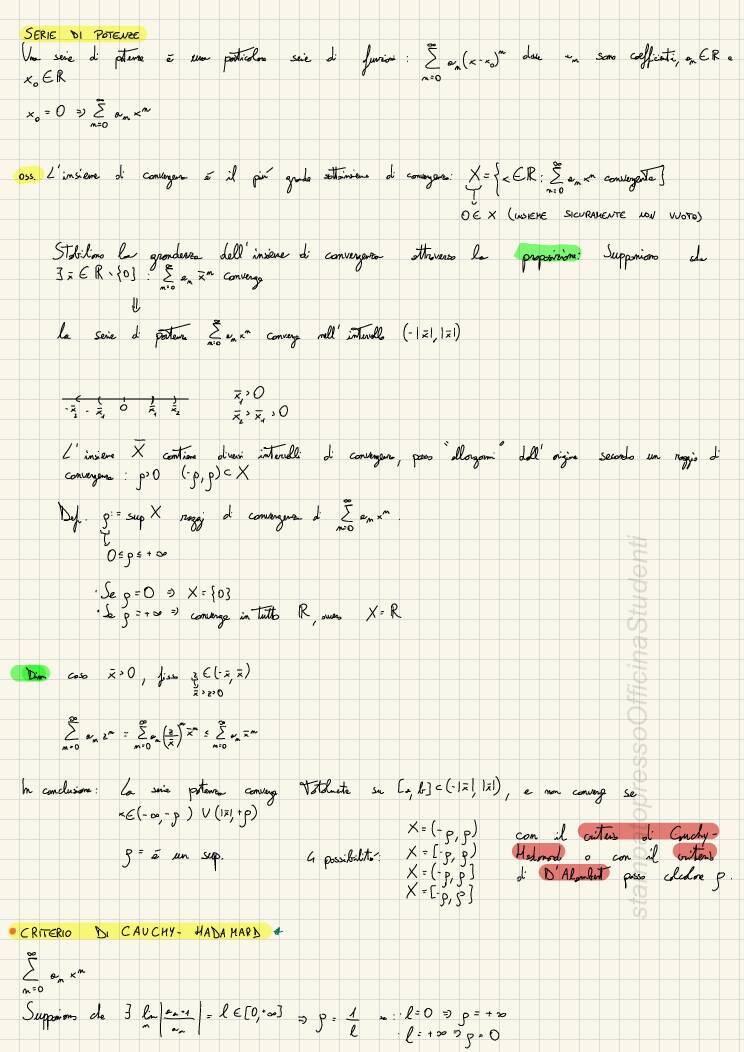 SERIE DI POTENZE
Una serie di potenze è una particolare serie di funzioni : ∑_{n=0}^{∞} a_n (x-x_0)^n dove a_n sono coefficienti, a_n ∈ ℝ e
x_0 ∈ ℝ
x_0 = 0 ⇒ ∑_{n=0}^{∞} a_n x^n
Oss. L'insieme di convergenza è il più grande sottoinsieme di convergenza: X = { x ∈ ℝ : ∑_{n=0}^{∞} a_n x^n convergente }
0 ∈ X (INSIEME SICURAMENTE NON VUOTO)
Stabiliamo la grandezza dell'insieme di convergenza attraverso la proposizione: Supponiamo che
∃ x̄ ∈ ℝ \ {0} : ∑_{n=0}^{∞} a_n x̄^n converge
⇓
la serie di potenze ∑_{n=0}^{∞} a_n x^n converge nell'intervallo (-|x̄|, |x̄|)
-x̄_2 -x̄_1 0 x̄_1 x̄_2 x̄_1 > 0
x̄_2 > x̄_1 > 0
L'insieme X̄ contiene diversi intervalli di convergenza, posso "allargarmi" dall'origine secondo un raggio di
convergenza : ρ>0 (-ρ, ρ) ⊂ X
Def. ρ := sup X raggi di convergenza di ∑_{n=0}^{∞} a_n x^n .
0 ≤ ρ ≤ +∞
• Se ρ = 0 ⇒ X = {0}
• Se ρ = +∞ ⇒ converge in tutto ℝ, ovvero X = ℝ
Dim caso x̄ > 0, fisso z ∈ (-x̄, x̄)
x̄ > z > 0
∑_{n=0}^{∞} a_n z^n = ∑_{n=0}^{∞} a_n (z/x̄)^n x̄^n ≤ ∑_{n=0}^{∞} a_n x̄^n
In conclusione: La serie potenze converge totalmente su [a, b] ⊂ (-|x̄|, |x̄|), e non converge se
x ∈ (-∞, -ρ) ∪ (|x̄|, +ρ)
ρ = è un sup. 4 possibilità: X = (-ρ, ρ)
X = [-ρ, ρ)
X = (-ρ, ρ]
X = [-ρ, ρ]
con il criterio di Cauchy-
Hadamard o con il criterio
di D'Alembert posso calcolare ρ.
• CRITERIO DI CAUCHY- HADAMARD
∑_{n=0}^{∞} a_n x^n
Supponiamo che ∃ lim_n |a_{n+1}/a_n| = l ∈ [0,+∞] ⇒ ρ = 1/l • l=0 ⇒ ρ = +∞
• l = +∞ ⇒ ρ = 0
stampatopressoOfficinaStudenti